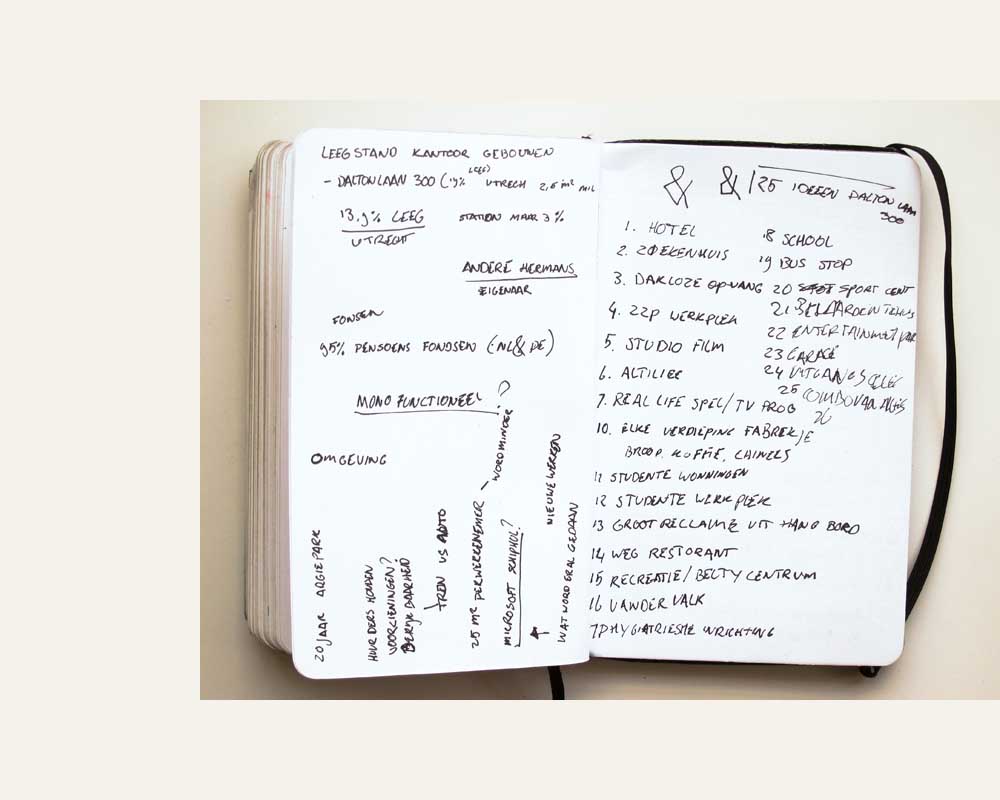 LEEGSTAND KANTOOR GEBOUWEN
- DALTONLAAN 300 (19% LEEG) UTRECH 2,6 m² MIL
13.9% LEEG
UTRECHT
STATION MAAR 3%
ANDERÉ HERMANS
EIGENAAR
FONSEN
95% PENSOENS FONDSEN (NL & DE)
MONO FUNCTIONEEL ?
OMGEVING
20 JAAR
HUURDERS HOUDEN
VOORZIENINGEN?
BEREIKBAARHEID
TREN VS AUTO
25 M² PER WERKENEMER - WORD MINDER
MICROSOFT SCHIPHOL?
NIEUWE WERKEN
WAT WORD ERAL GEDAAN
& & 25 IDEEEN DALTON LAAN
300
1. HOTEL
2. ZIEKENHUIS
3. DAKLOZE OPVANG
4. ZZP WERKPLEK
5. STUDIO FILM
6. ALTILIEE
7. REAL LIFE SPEL/TV PROG
10. ELKE VERDIEPING FABREKJE
BROOD, KOFFIE,
11 STUDENTE WONNINGEN
12 STUDENTE WERKPLEK
13 GROOT RECLAME UIT HANG BORD
14 WEG RESTORANT
15 RECREATIE/BEUTY CENTRUM
16 VANDER VALK
17 INRICHTING
18 SCHOOL
19 BUS STOP
20 SPORT CENT
21
22 ENTERTAINMET PAR
23 GARAGE
24 UITGANGS
25 COMBO VAN
26